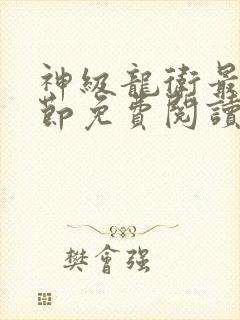 神級龍衛最
節免費閱讀
樊會强